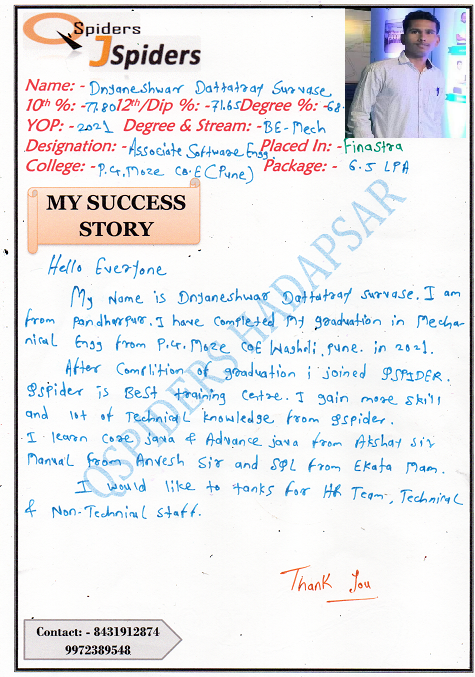 QSpiders
JSpiders
Name: - Dnyaneshwar Dattatray Survase
10th %: -77.80 12th/Dip %: -71.65 Degree %: -68.
YOP: - 2021 Degree & Stream: -BE-Mech
Designation: -Associate Software Engg. Placed In: -Finastra
College: -P.G. Moze Co.E (Pune) Package: - 6.5 LPA
MY SUCCESS
STORY
Hello Everyone
My Name is Dnyaneshwar Dattatray Survase. I am
from Pandharpur. I have completed my graduation in Mecha-
nical Engg from P.G. Moze CoE Wagholi, Pune. in 2021.
After Complition of graduation i joined QSPIDER.
QSpider is Best training Centre. I gain more skill
and lot of Technical knowledge from qspider.
I learn core java & Advance java from Akshay sir
Manual from Anvesh Sir and SQL from Ekata Mam.
I would like to tanks for HR Team, Technical
& Non-Technical staff.
Thank You
QSPIDERS HADAPSAR
Contact: - 8431912874
9972389548